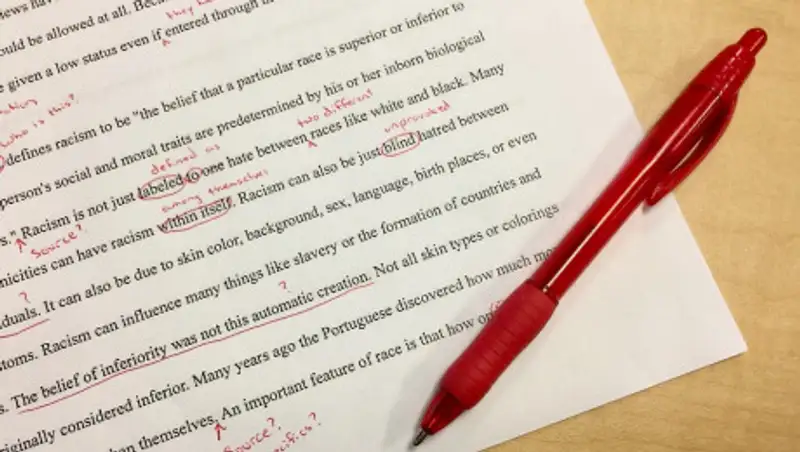 iews have
they he
ould be allowed at all. Beca
e given a low status even if entered through
who is this?
defines racism to be "the belief that a particular race is superior or inferior to
person's social and moral traits are predetermined by his or her inborn biological
defined as
two different
unprovoked
s." Racism is not just labeled to one hate between races like white and black. Many
Source?
among themselves
nicities can have racism within itself. Racism can also be just blind hatred between
?
duals. It can also be due to skin color, background, sex, language, birth places, or even
toms. Racism can influence many things like slavery or the formation of countries and
?
s. The belief of inferiority was not this automatic creation. Not all skin types or colorings
riginally considered inferior. Many years ago the Portuguese discovered how much mo
an themselves. An important feature of race is that how on
Source?
ecifics?